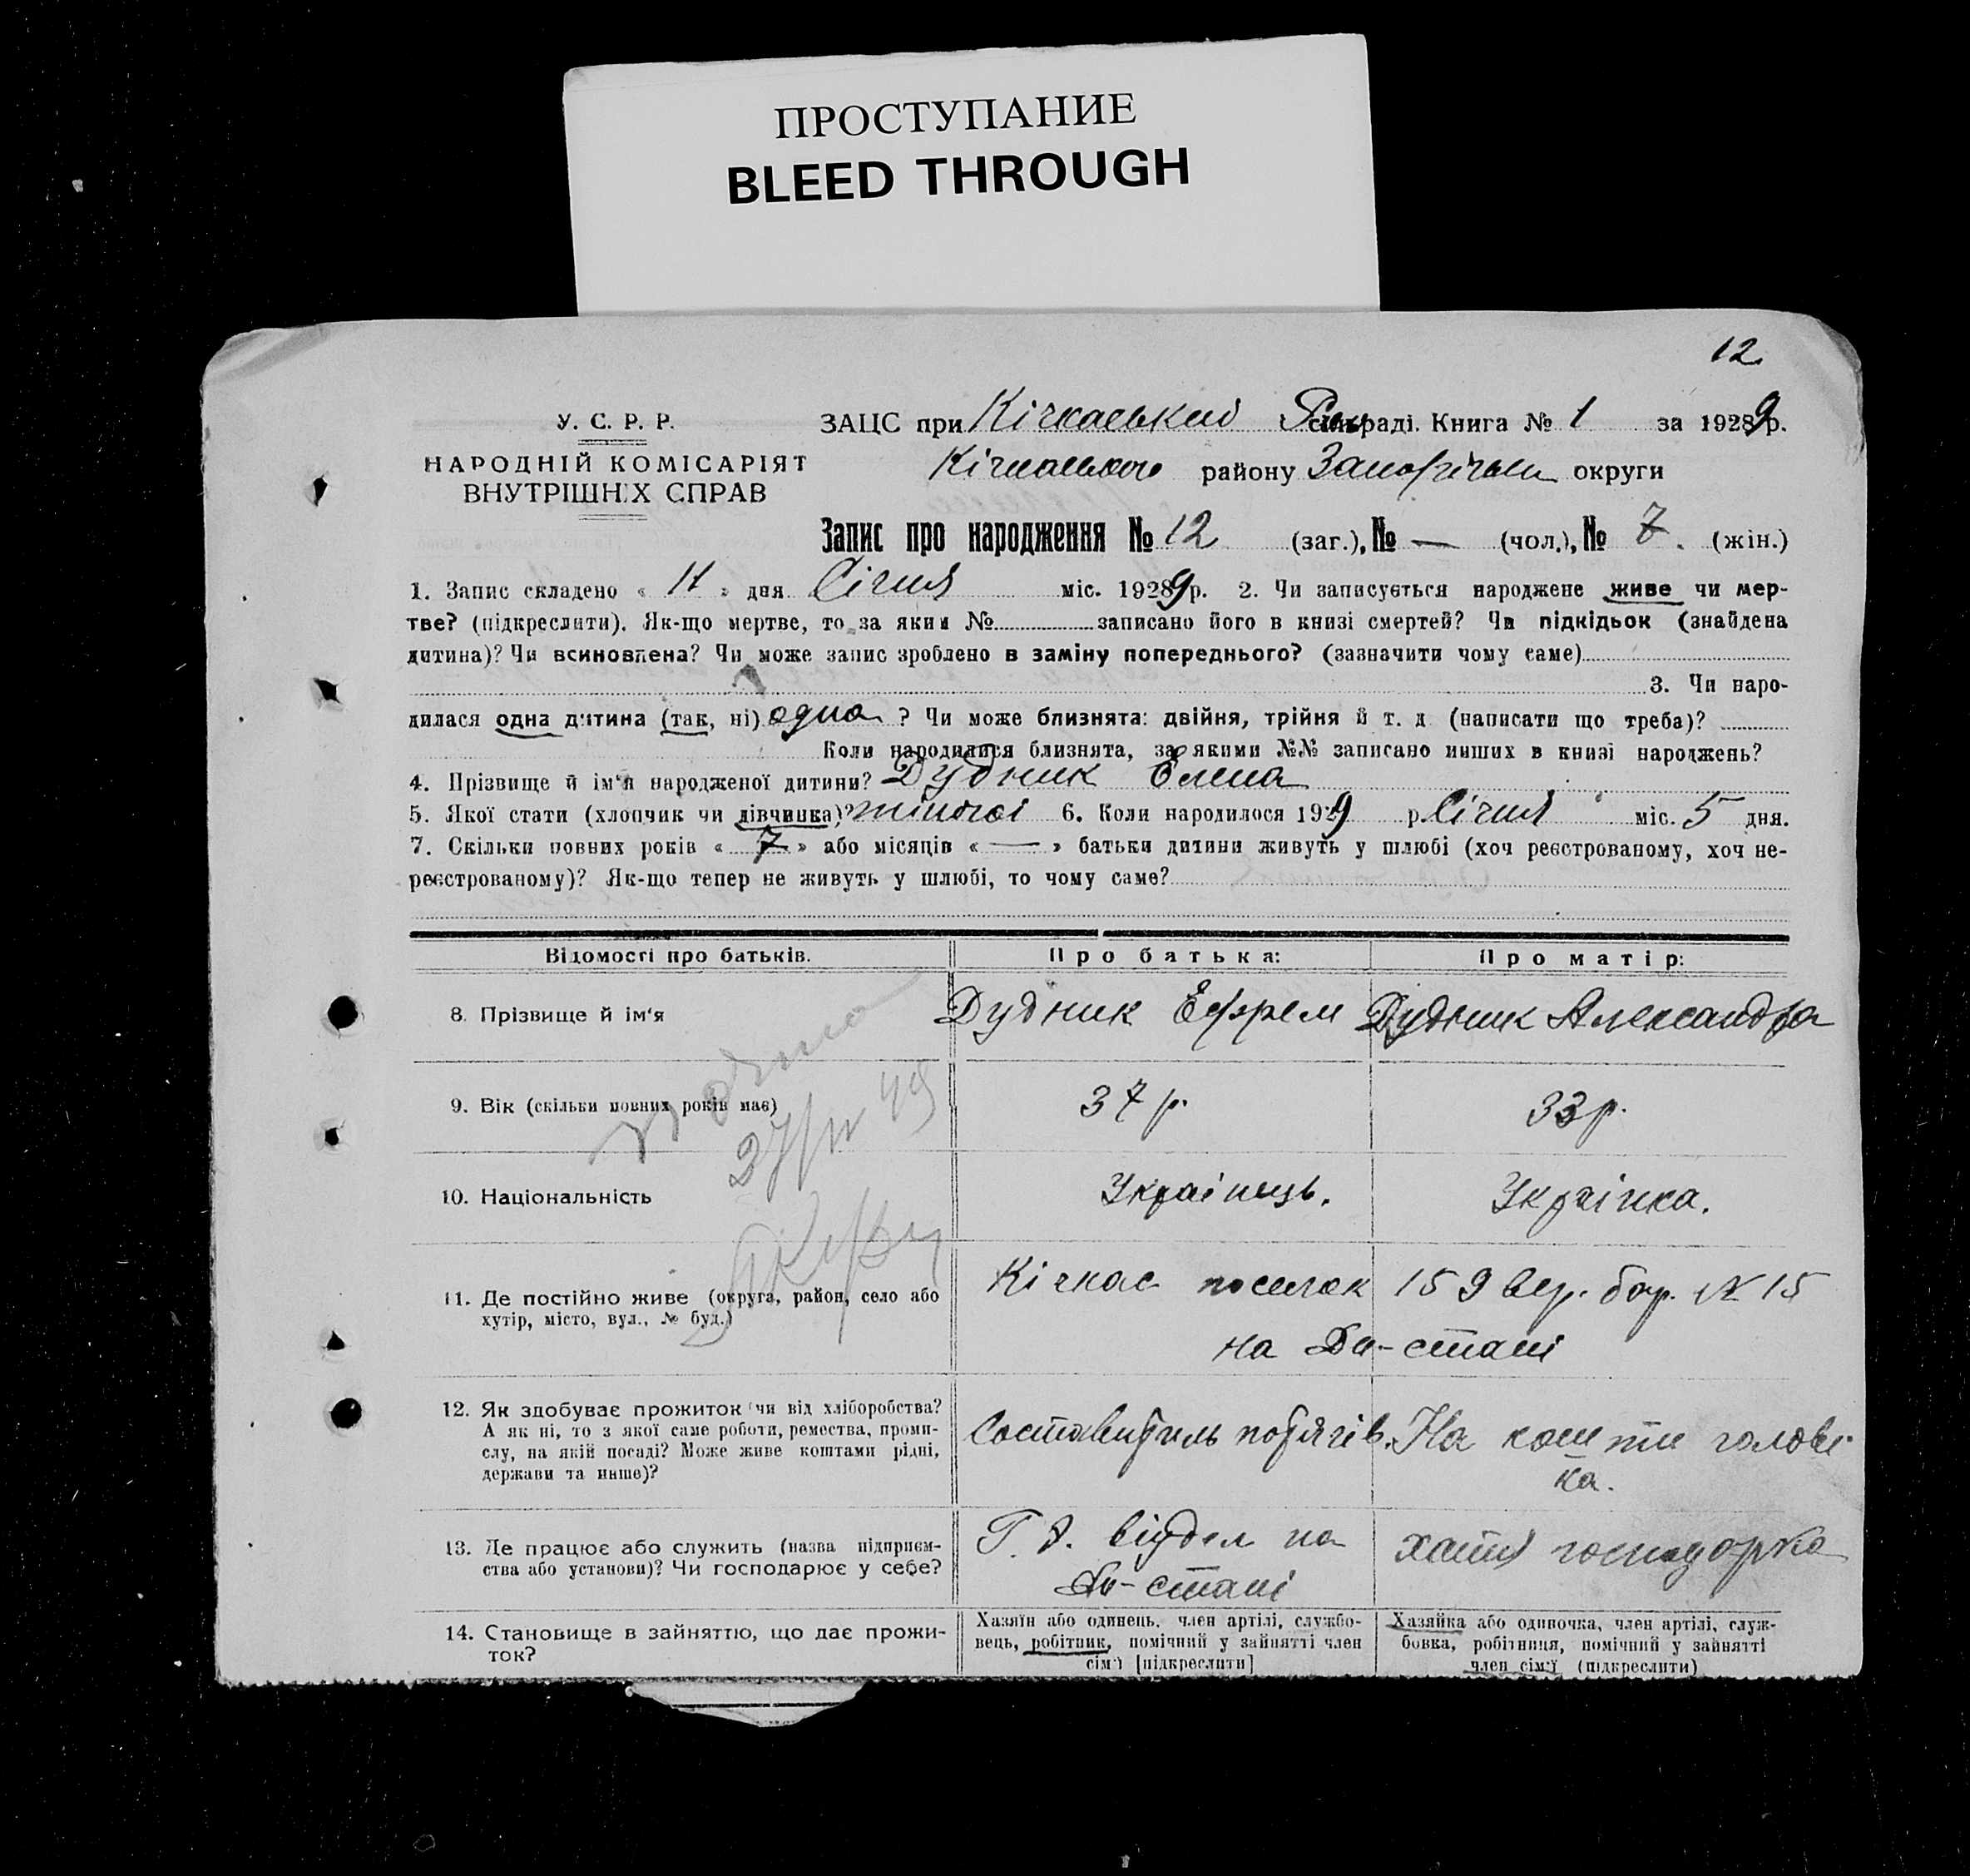 ПРОСТУПАНИЕ
BLEED THROUGH
12
У. С. Р. Р.
НАРОДНІЙ КОМІСАРІЯТ
ВНУТРІШНІХ СПРАВ
ЗАЦС при Кічкаський раді. Книга № 1 за 1929 р.
Кічкаського району округи
Запис про народження № 12 (заг.), № — (чол.), № 7. (жін.)
1. Запис складено « 11 » дня Січня міс. 1929 р. 2. Чи записується народжене живе чи мер-
тве? (підкреслити). Як-що мертве, то за яким № записано його в книзі смертей? Чи підкідьок (знайдена
дитина)? Чи всиновлена? Чи може запис зроблено в заміну попереднього? (зазначити чому саме)
3. Чи наро-
дилася одна дитина (так, ні) одна ? Чи може близнята: двійня, трійня й т. д. (написати що треба)?
Коли народилися близнята, за якими №№ записано инших в книзі народжень?
4. Прізвище й ім'я народженої дитини? Дудник Елена
5. Якої стати (хлопчик чи дівчинка)? жіночої 6. Коли народилося 1929 р. Січня міс. 5 дня.
7. Скільки повних років « 7 » або місяців « — » батьки дитини живуть у шлюбі (хоч реєстрованому, хоч не-
реєстрованому)? Як-що тепер не живуть у шлюбі, то чому саме?
Відомості про батьків.
Про батька:
Про матір:
8. Прізвище й ім'я
Дудник Ефрем
Дудник Александра
9. Вік (скільки повних років має)
37 р.
33 р.
10. Національність
Українець.
Українка.
11. Де постійно живе (округа, район, село або
хутір, місто, вул., № буд.)
Кічкас поселок 159 вер. бар. № 15
на Дн-стані
12. Як здобуває прожиток (чи від хліборобства?
А як ні, то з якої саме роботи, ремества, проми-
слу, на якій посаді? Може живе коштами рідні,
держави та инше)?
Составитель потягів.
На кошти голові-
ка.
13. Де працює або служить (назва підприєм-
ства або установи)? Чи господарює у себе?
відділ на
Дн-стані
хатня господарка
14. Становище в зайняттю, що дає прожи-
ток?
Хазяїн або одинець, член артілі, службо-
вець, робітник, помічний у зайнятті член
сім'ї [підкреслити]
Хазяйка або одиночка, член артілі, служ-
бовка, робітниця, помічний у зайнятті
член сім'ї (підкреслити)